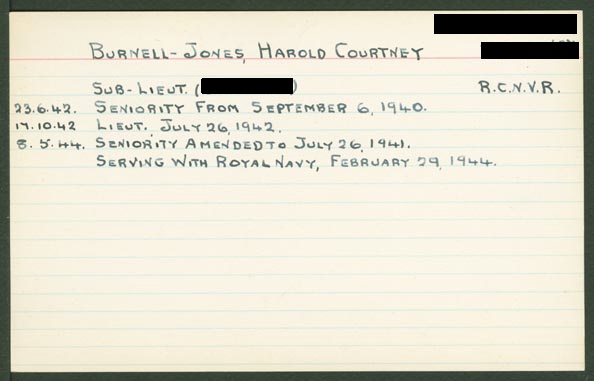 BURNELL-JONES, HAROLD COURTNEY
SUB-LIEUT. ( ) R.C.N.V.R.
23.6.42. SENIORITY FROM SEPTEMBER 6, 1940.
17.10.42 LIEUT. JULY 26, 1942.
8.5.44. SENIORITY AMENDED TO JULY 26, 1941.
SERVING WITH ROYAL NAVY, FEBRUARY 29, 1944.